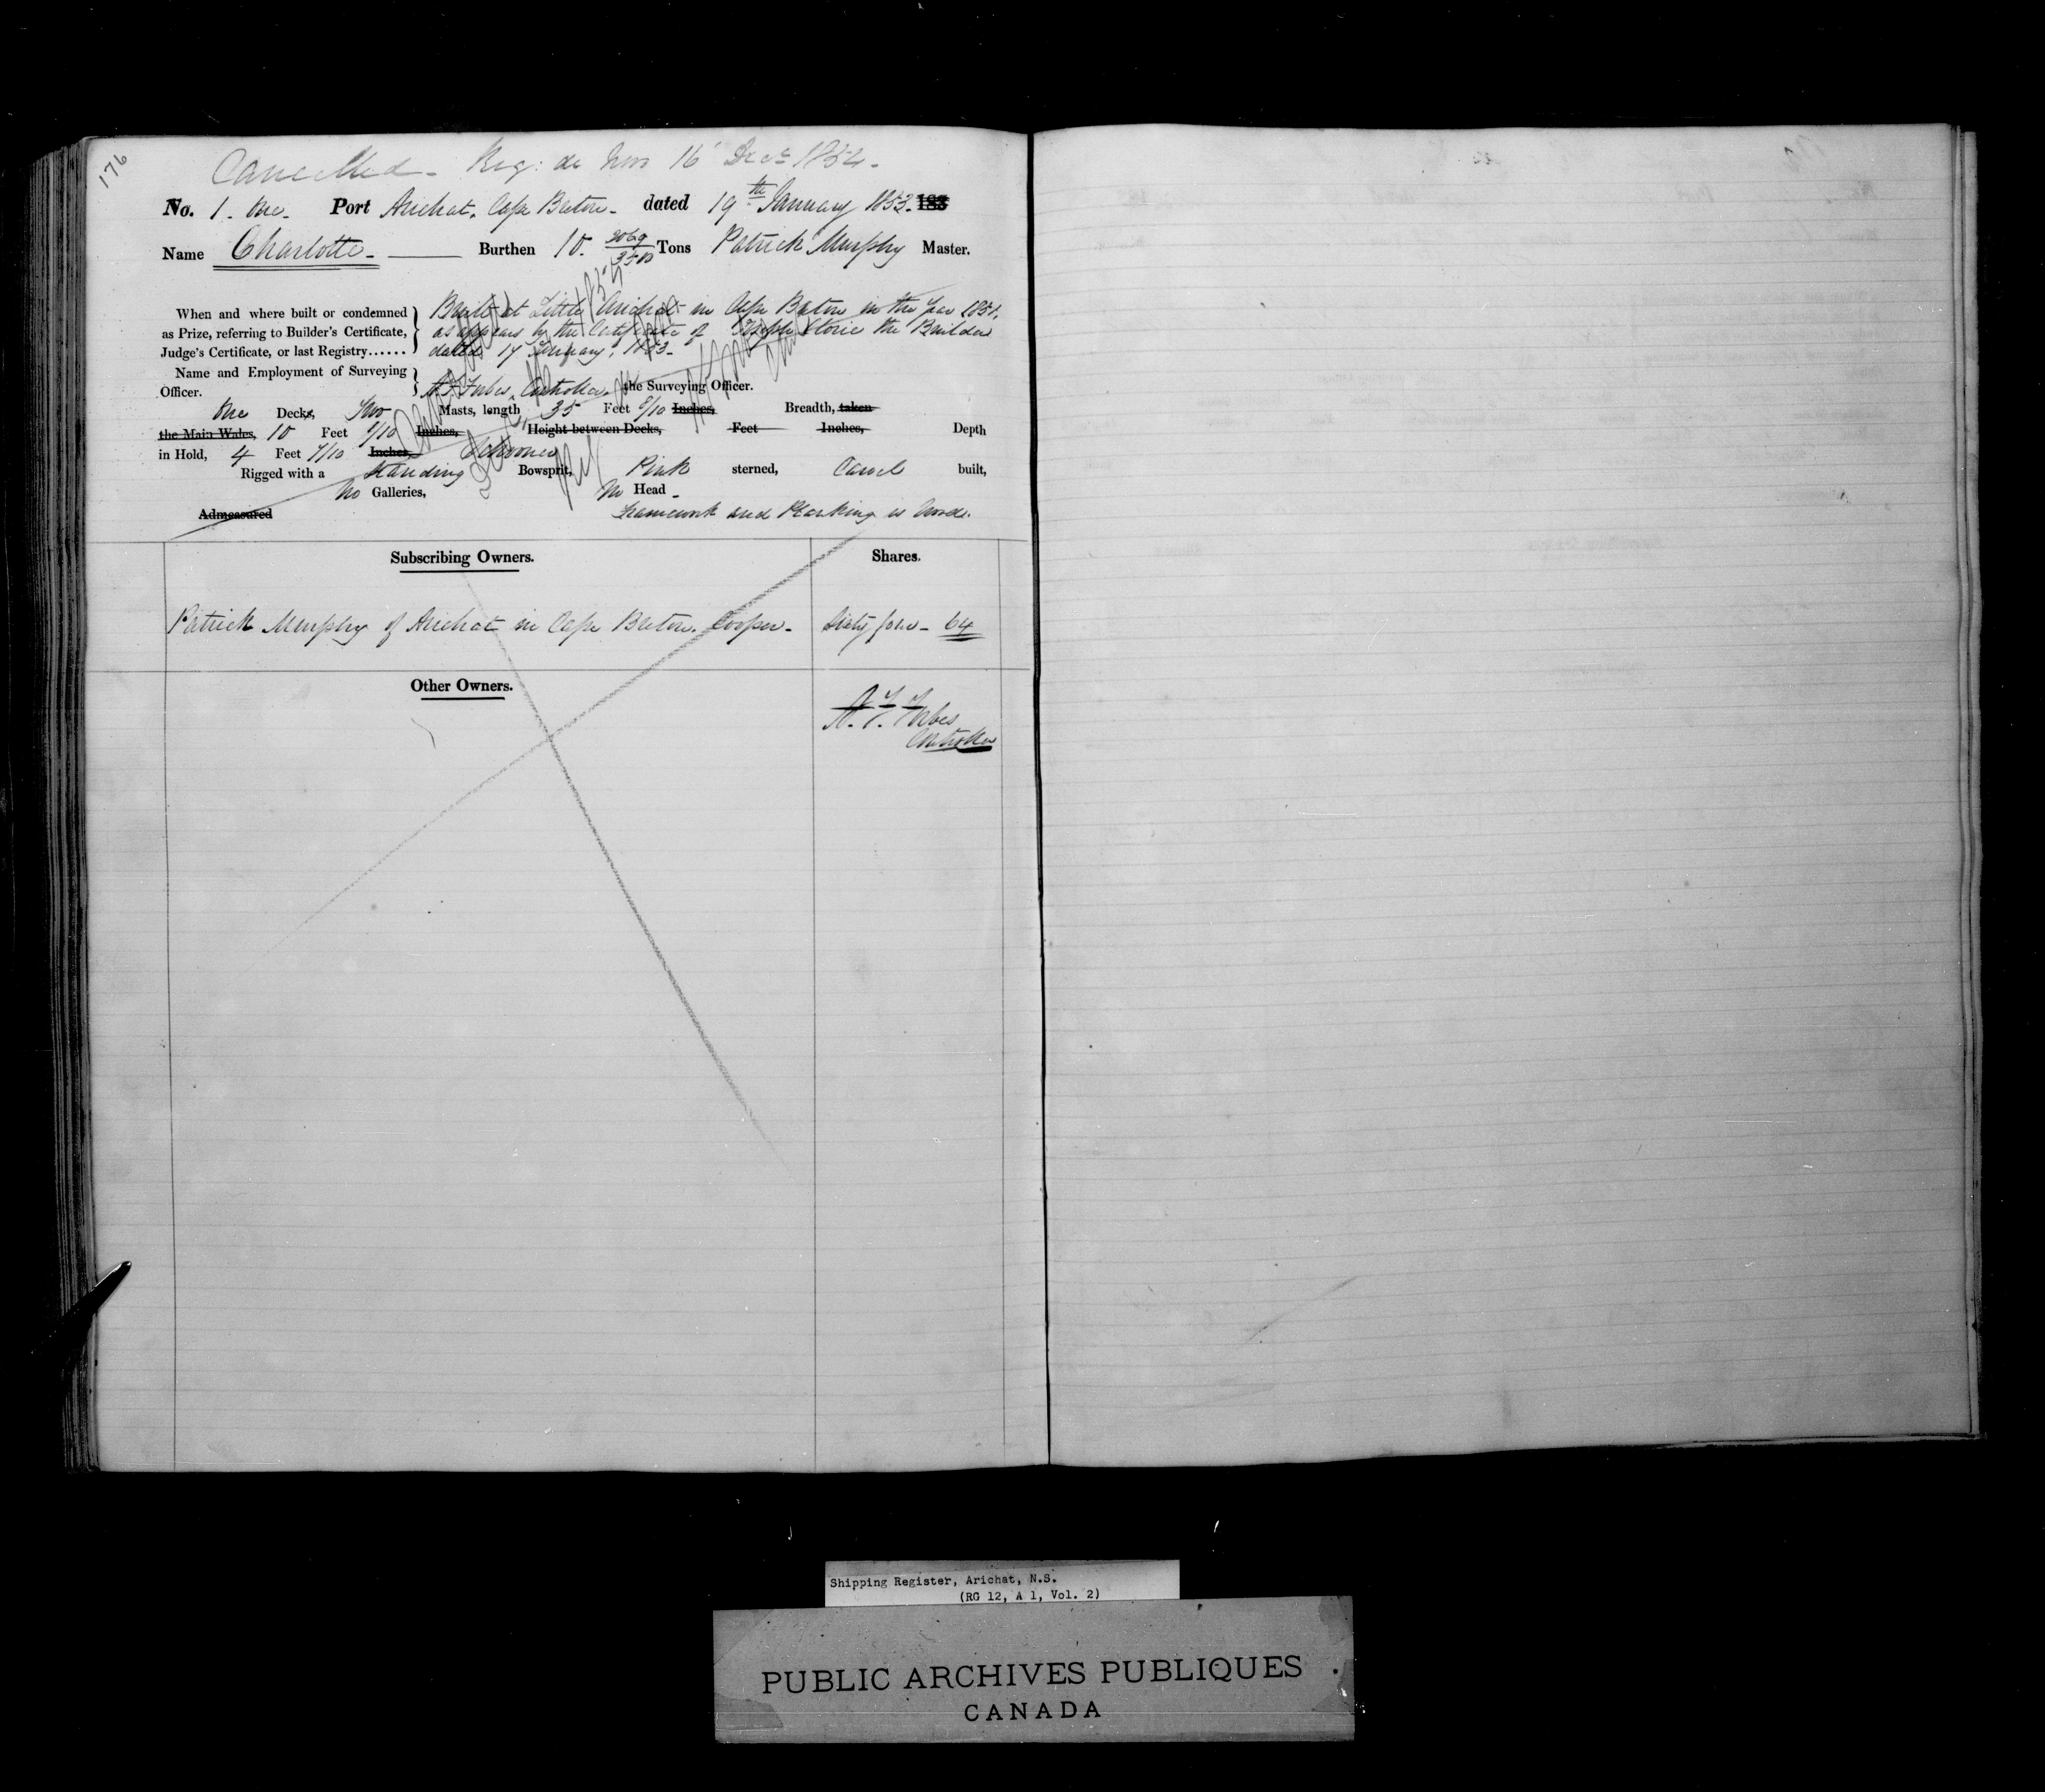 176
Cancelled - Reg: de novo 16 Decr 1854 -
No. 1. One. Port Arichat, Cape Breton - dated 19th January 1853. 183
Name Charlotte - Burthen 10. 2069/3500 Tons Patrick Murphy Master.
When and where built or condemned as Prize, referring to Builder's Certificate, Judge's Certificate, or last Registry......
Built at Little Arichat in Cape Breton in the Year 1851,
as appears by the Certificate of Joseph the Builder
dated 17 January, 1853 -
Name and Employment of Surveying Officer.
A. F. Forbes, Controller, the Surveying Officer.
One Decks, Two Masts, length 35 Feet 8/10 Inches, Breadth, taken
the Main Wales, 10 Feet Inches, Height between Decks, Feet Inches, Depth
in Hold, 4 Feet 7/10 Inches, Schooner
Rigged with a Standing Bowsprit, Pink sterned, Carvel built,
No Galleries, No Head -
Admeasured Framework and Planking is Wood.
Subscribing Owners. Shares.
Patrick Murphy of Arichat in Cape Breton. Cooper - Sixty four - 64
Other Owners.
A. F. Forbes
Controller
Shipping Register, Arichat, N.S.
(RG 12, A 1, Vol. 2)
PUBLIC ARCHIVES PUBLIQUES
CANADA